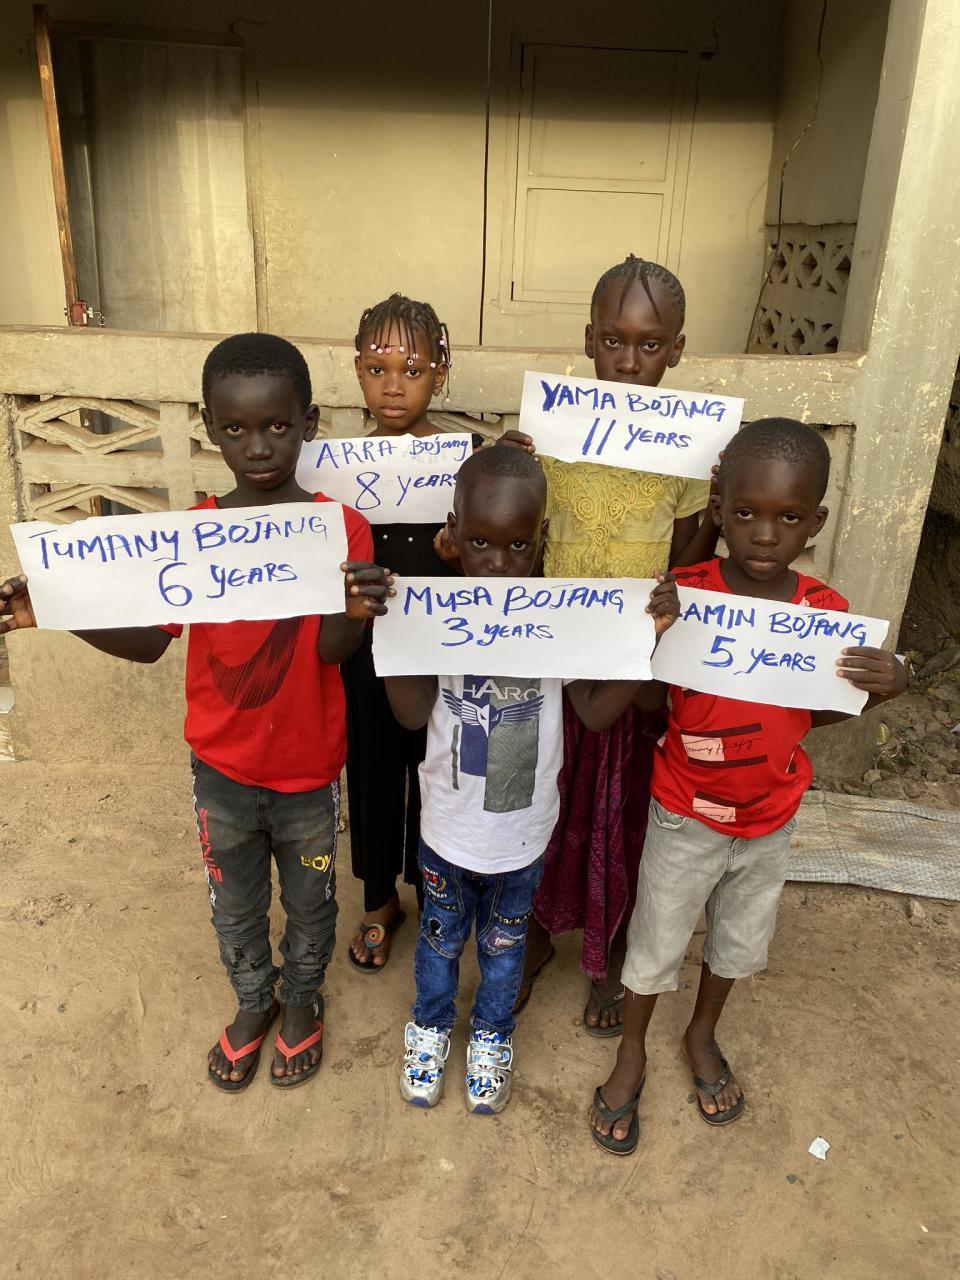 YAMA BOJANG
11 YEARS
ARRA Bojang
8 YEARS
TUMANY BOJANG
6 YEARS
MUSA BOJANG
3 YEARS
LAMIN BOJANG
5 YEARS
HARO
BOY